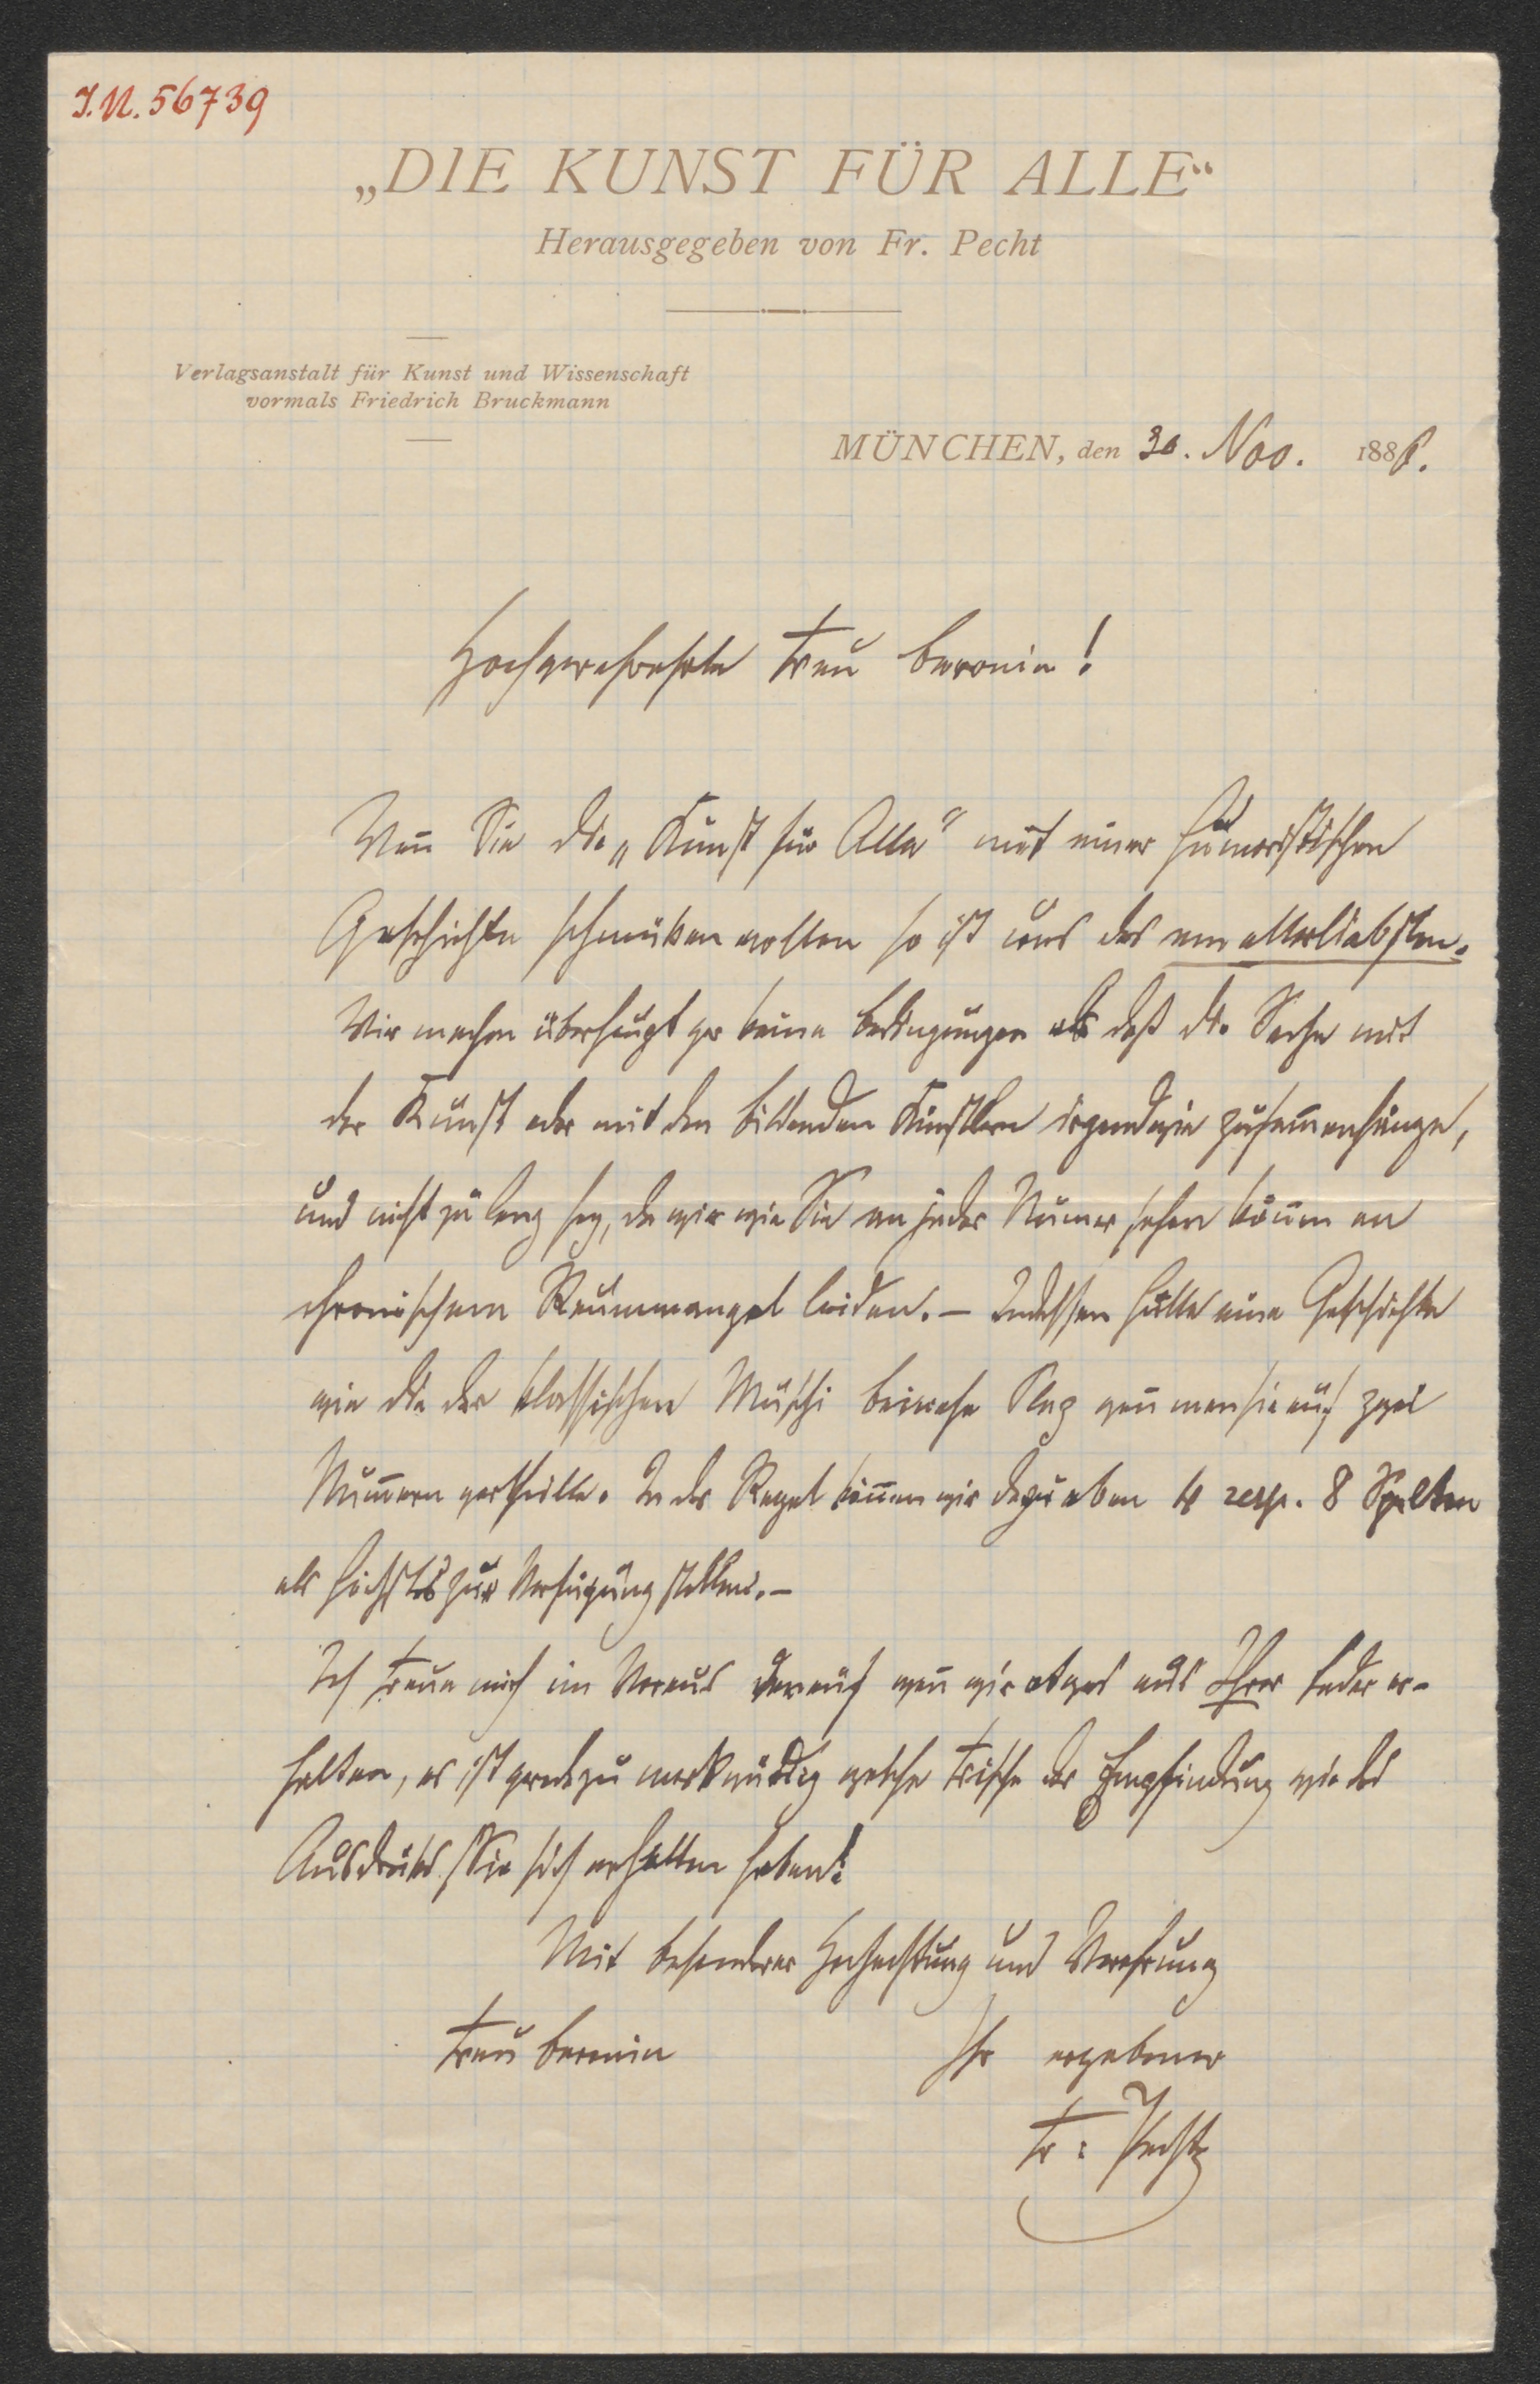 I.N. 56739
„DIE KUNST FÜR ALLE“
Herausgegeben von Fr. Pecht
Verlagsanstalt für Kunst und Wissenschaft
vormals Friedrich Bruckmann
MÜNCHEN, den 30. Nov. 1886.
Hochverehrteste Frau Baronin!
Wen̄ Sie die „Kunst für Alle“ mit einer humoristischen
Geschichte schmüken wollen so ist uns das am allerliebsten.
Wir machen überhaupt gar keine Bedingungen als daß die Sache mit
der Kunst oder mit den bildenden Künstlern irgendwie zusam̄enhänge,
und nicht zu lang sey, da wir wie Sie an jeder Numer sehen kön̄en an
chronischem Raummangel leiden. – Indessen hätte eine Geschichte
wie die der klassischen Muschi beinahe Plaz wen̄ man sie auf zwei
Num̄ern vertheilte. In der Regel kön̄en wir dazu eben 4 resp. 8 Spalten
als höchstes zur Verfügung stellen. –
Ich freue mich im Voraus darauf wen̄ wir etwas aus Ihrer Feder er-
halten, es ist geradezu merkwürdig welche Frische der Empfindung wie des
Ausdruks Sie sich erhalten haben!
Mit besonderer Hochachtung und Verehrung
Frau Baronin Ihr ergebener
Fr: Pecht